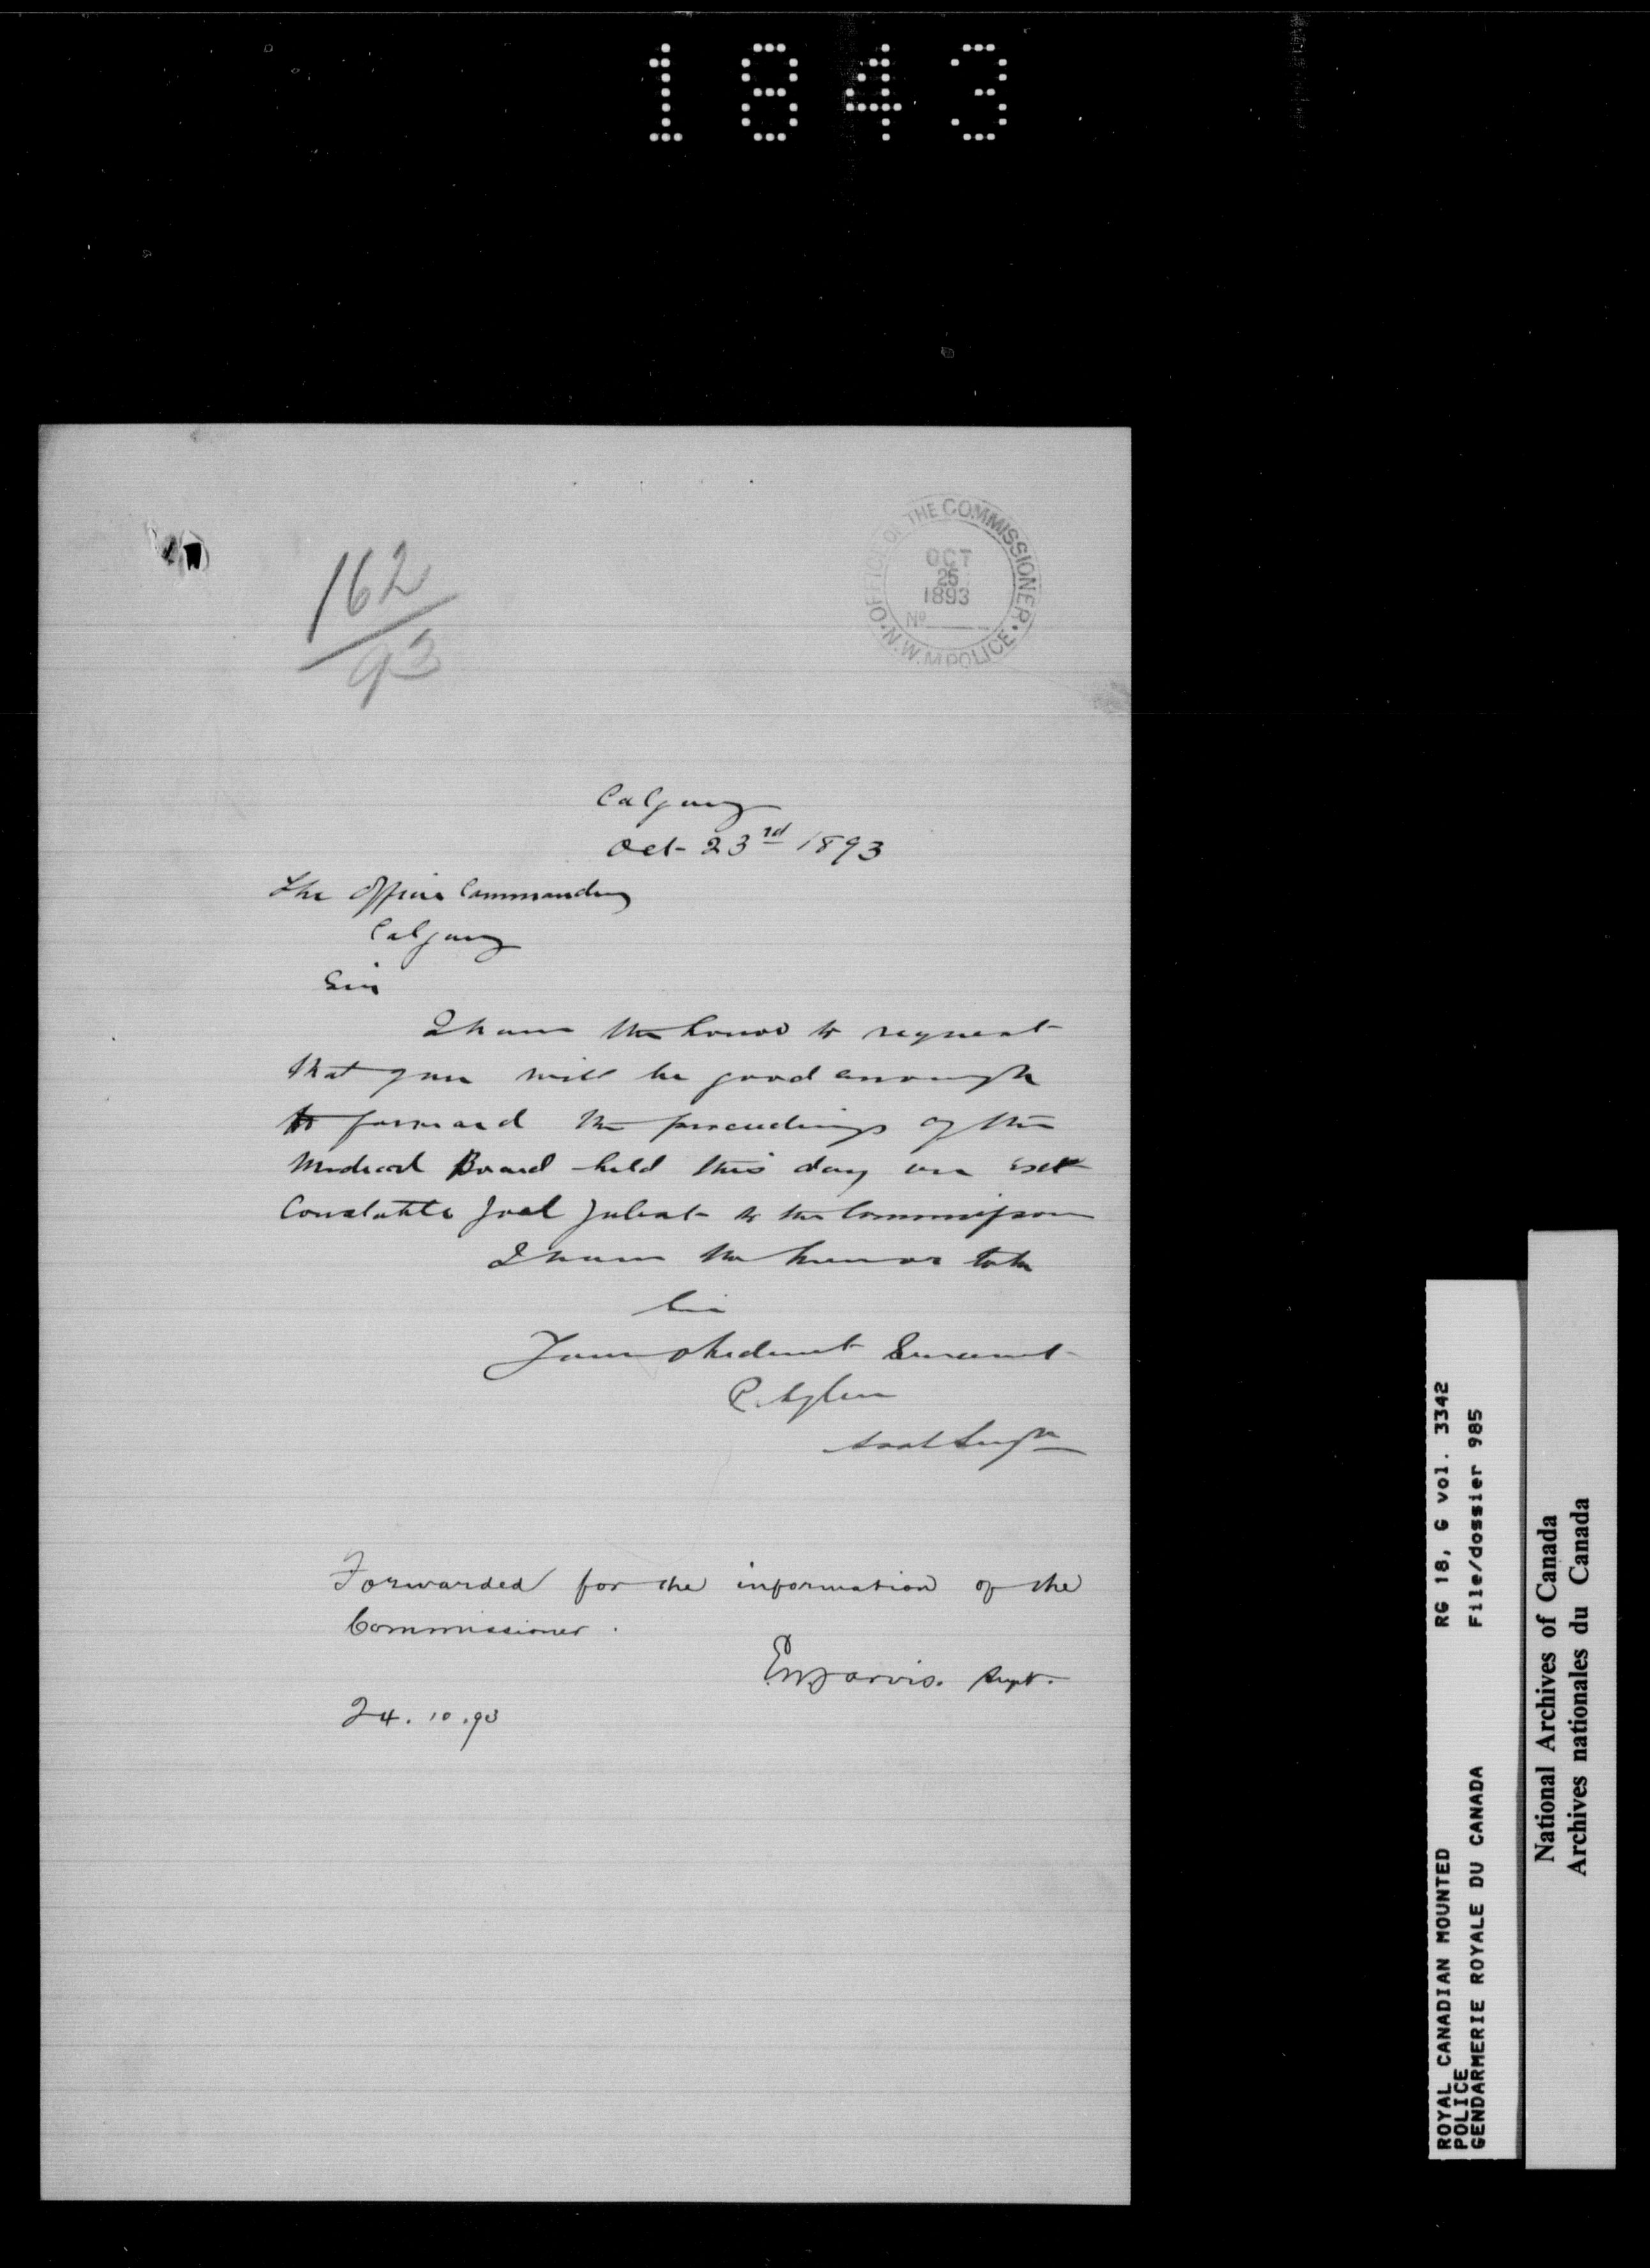 1843
162
93
OFFICE OF THE COMMISSIONER
OCT
25
1893
No
N.W.M POLICE
Calgary
Oct 23rd 1893
The Officer Commanding
Calgary
Sir
I have the honor to request
that you will be good enough
to forward the proceedings of the
Medical Board held this day on
Constable Joel to the Commissioner
I have the honor to be
Sir
Your obedient Servant
Asst Surgn
Forwarded for the information of the
Commissioner.
E.W. Jarvis. Supt.
24.10.93
RG 18, G vol. 3342
File/dossier 985
ROYAL CANADIAN MOUNTED
POLICE
GENDARMERIE ROYALE DU CANADA
National Archives of Canada
Archives nationales du Canada